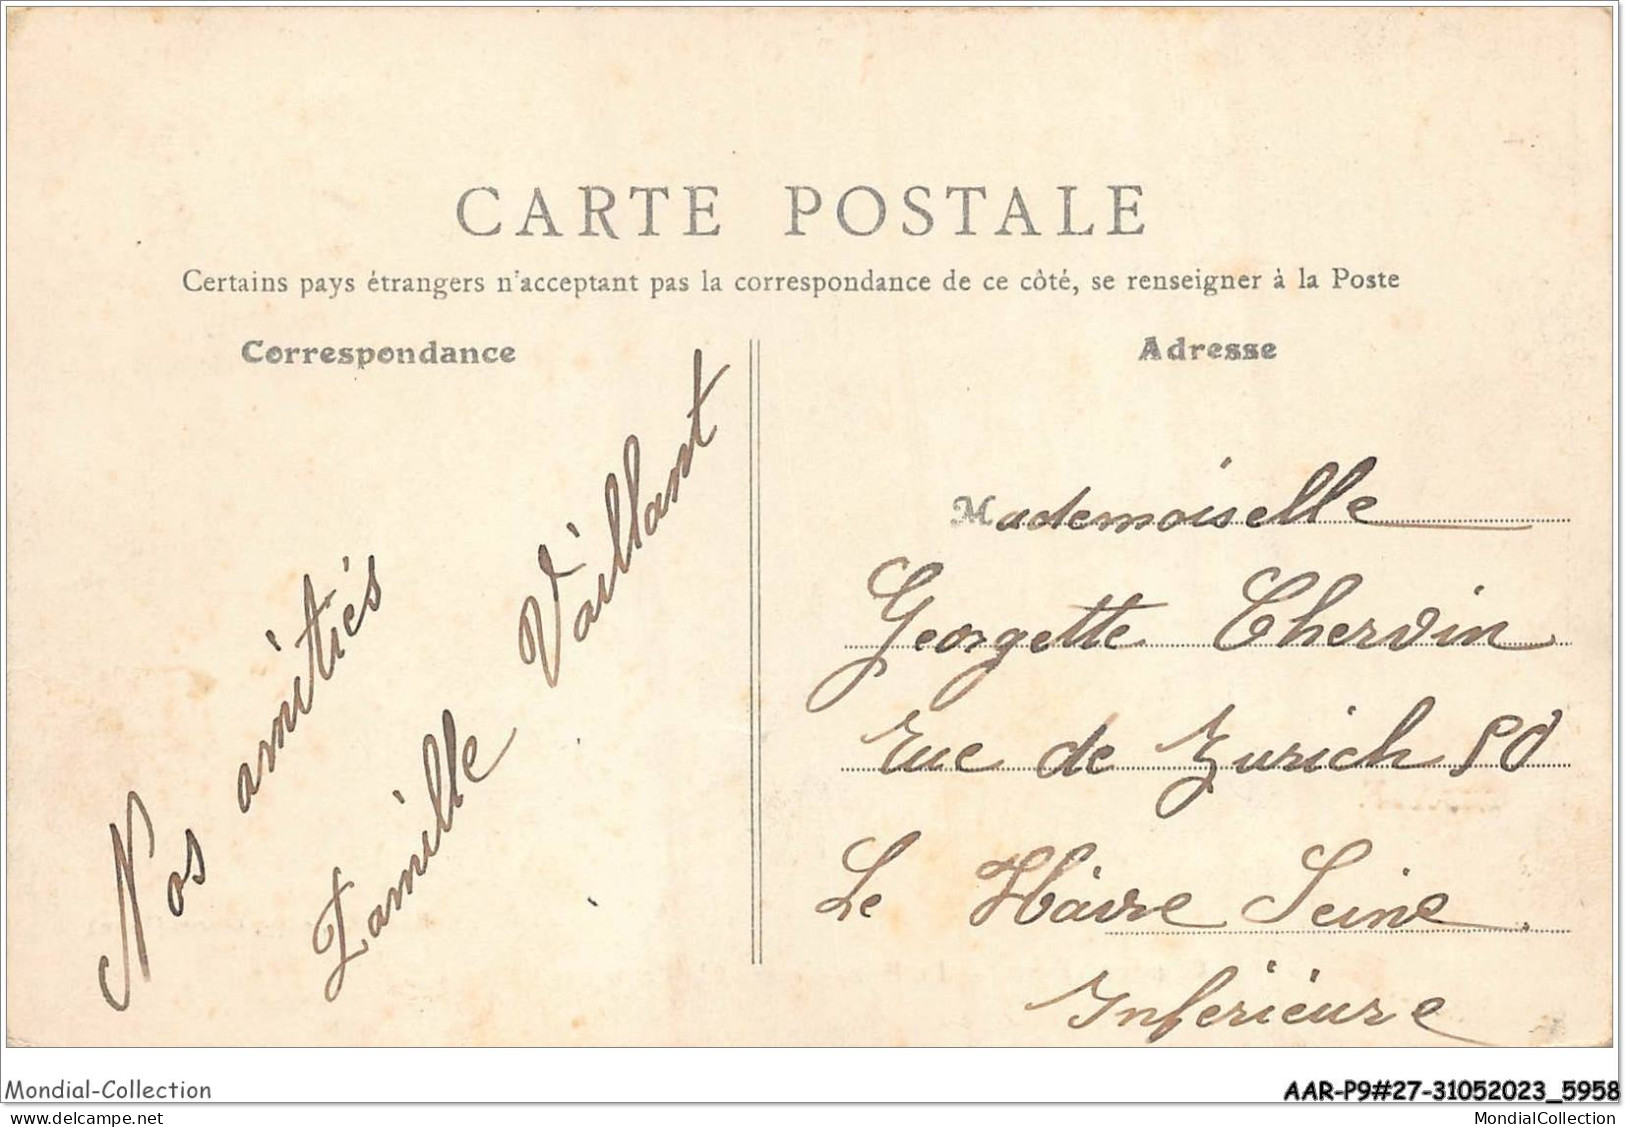 CARTE POSTALE
Certains pays étrangers n'acceptant pas la correspondance de ce côté, se renseigner à la Poste
Correspondance
Nos amitiés
Famille Vaillant
Adresse
Mademoiselle
Georgette Chervin
Rue de Zurich 50
Le Hâvre Seine
Inférieure
Mondial-Collection
AAR-P9#27-31052023_5958
www.delcampe.net
MondialCollection